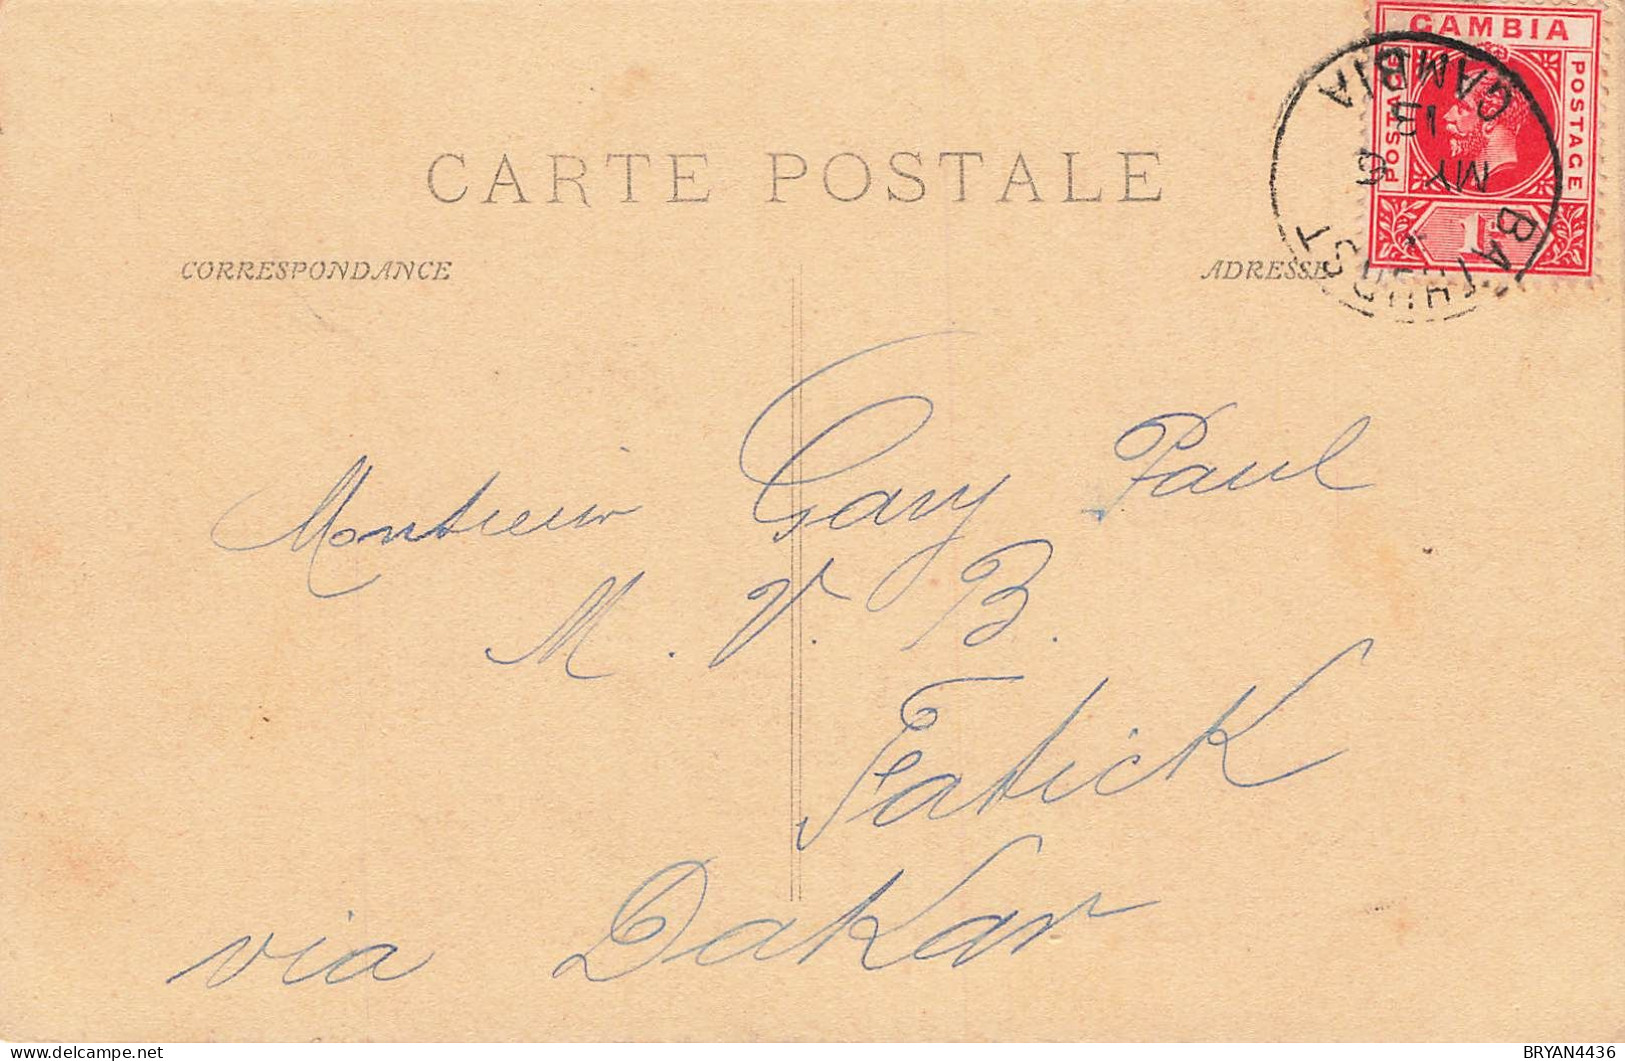 GAMBIA
POSTAGE
POSTAGE
1d
BATHURST
GAMBIA
MY
13
CARTE POSTALE
CORRESPONDANCE
ADRESSE
Monsieur Gary Paul
M. V. B.
Fatick
via Dakar
delcampe.net
BRYAN4436